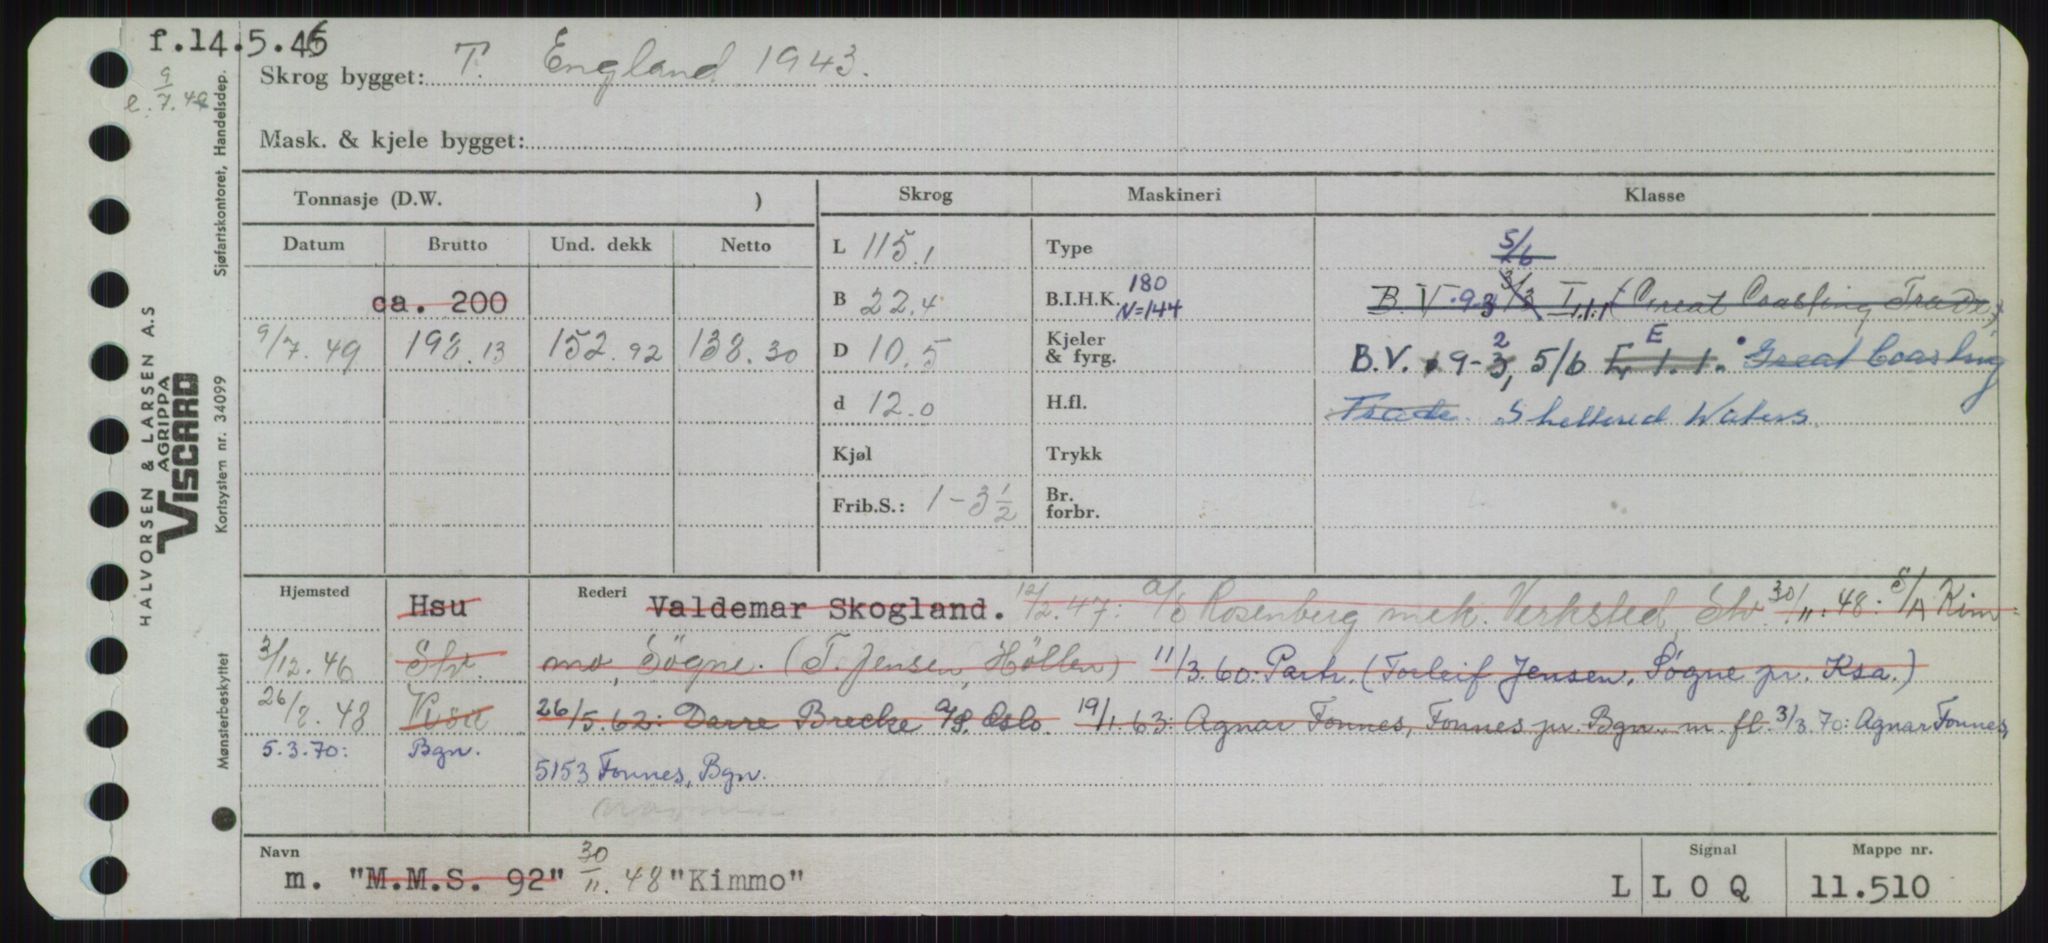 f.14.5.46
9/7.49
Skrog bygget: T. England 1943.
Mask. & kjele bygget:
HALVORSEN & LARSEN A.S
AGRIPPA
VISCARD
Kortsystem nr. 34099
Sjøfartskontoret, Handelsdep.
Mønsterbeskyttet
Tonnasje (D.W. )
Skrog
Maskineri
Klasse
Datum Brutto Und. dekk Netto
ca. 200
9/7.49 198.13 152.92 138.30
L 115.1
B 22.4
D 10.5
d 12.0
Kjøl
Frib.S.: 1-3 1/2
Type
B.I.H.K. 180 N=144
Kjeler & fyrg.
H.fl.
Trykk
Br. forbr.
5/6
B V 9-3 3/3 I.1.1 (Great Coasting Trade)
B.V. 9-3, 2 5/6 E 1.1. Great Coasting
Trade. Sheltered Waters.
Hjemsted Hsu Rederi Valdemar Skogland. 12/2.47: A/S Rosenberg mek. Verksted, Stv 30/11.48: S/A Kim-
3/12.46 Stv. mo, Søgne. (T. Jensen, Höllen) 11/3.60: Partr. (Torleif Jensen, Søgne pr. Ksa.)
26/8.48 26/5.62: Darre Brecke A/S. Oslo. 19/1.63: Agnar Fonnes, Fonnes pr. Bgn. m. fl. 3/3.70: Agnar Fonnes,
5.3.70: Bgn. 5153 Fonnes, Bgn.
Navn Signal Mappe nr.
m. "M.M.S. 92" 30/11.48 "Kimmo" L L O Q 11.510